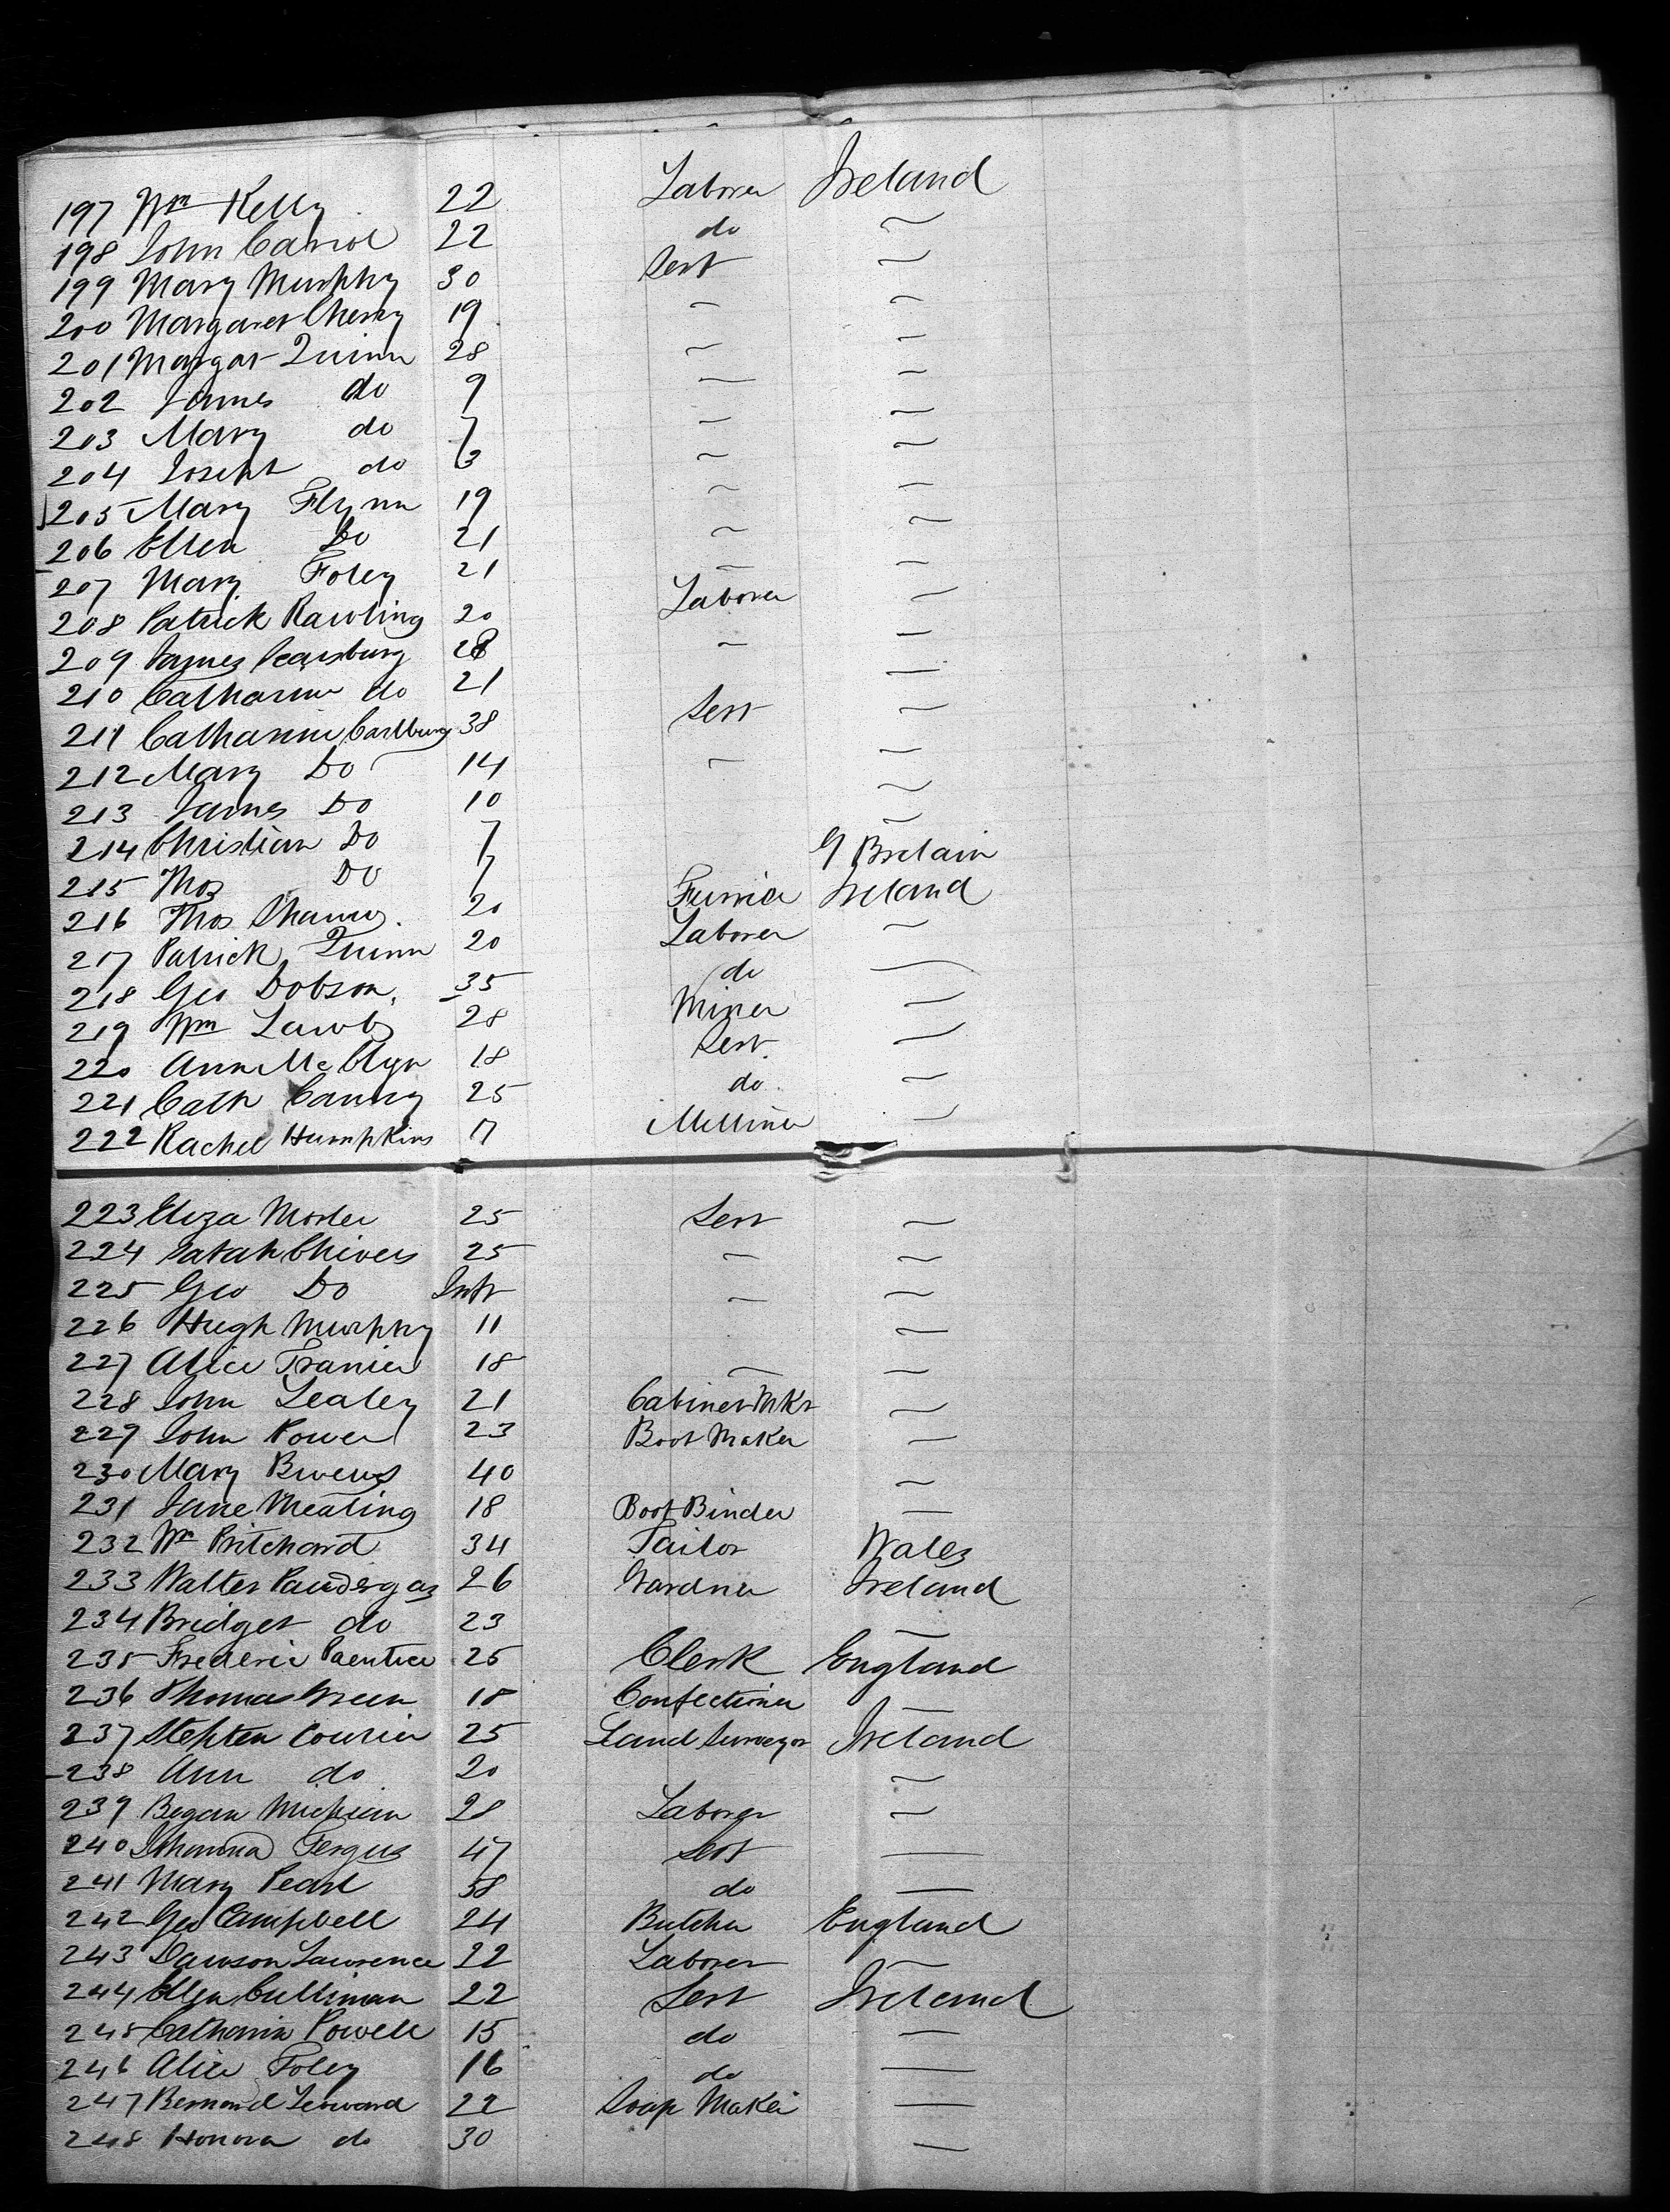 197 Wm Kelly 22 Laborer Ireland
198 John Carrol 22 do —
199 Mary Murphy 30 Servt —
200 Margaret Cherry 19 — —
201 Margat Quinn 28 — —
202 James do 9 — —
203 Mary do 7 — —
204 Joseph do 3 — —
205 Mary Flynn 19 — —
206 Ellen Do 21 — —
207 Mary Foley 21 — —
208 Patrick Rawling 20 Laborer —
209 James 28 — —
210 Catharine do 21 —
211 Catharine Carlbury 38 Servt —
212 Mary Do 14 — —
213 James Do 10 —
214 Christian Do 7 —
215 Thos Do 7 G Bretain
216 Thos 20 Ireland
217 Patrick Quinn 20 Laborer —
218 Geo Dobson 35 do —
219 Wm 28 Miner —
220 Ann Mc Glyn 18 Servt —
221 Cath Canny 25 do —
222 Rachel Humpkins 17 Milliner —
223 Eliza 25 Servt —
224 Sarah Chivers 25 — —
225 Geo Do Inft — —
226 Hugh Murphy 11 —
227 Alice 18 — —
228 John Lealey 21 Cabinet Mkr —
229 John Power 23 Boot Maker —
230 Mary 40 —
231 Jane Meating 18 Boot Binder —
232 Wm Pritchard 34 Tailor Wales
233 Walter Pandergas 26 Gardner Ireland
234 Bridget do 23 —
235 Frederic 25 Clerk England
236 Thomas Green 18 Confectioner —
237 Stephen Courier 25 Land Surveyor Ireland
238 Ann do 20 —
239 28 Laborer —
240 Johanna Fergus 47 Servt —
241 Mary Pearl 38 do —
242 Geo Campbell 24 Butcher England
243 Dawson Lawrence 22 Laborer —
244 Ellen Cullinan 22 Servt Ireland
245 Catharin Powell 15 do —
246 Alice Foley 16 do —
247 Bernard 22 Soap Maker —
248 Honora do 30 —